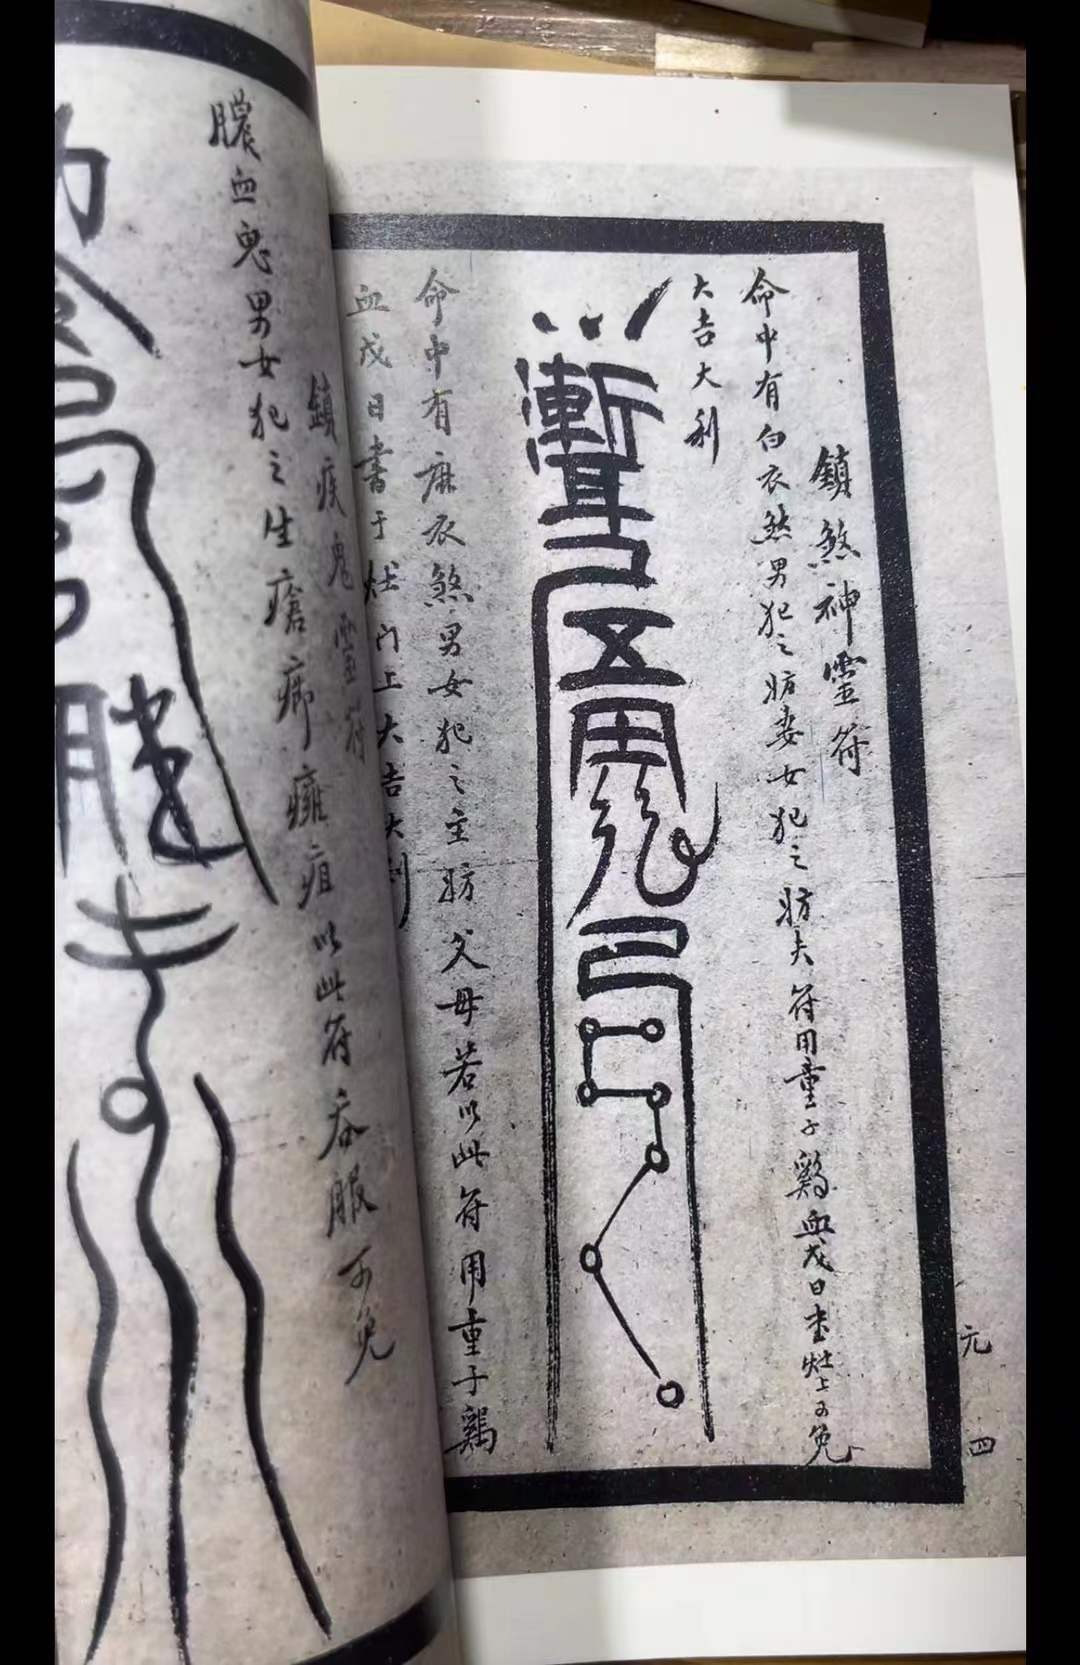 鎮煞神靈符
命中有白衣煞男犯之妨妻女犯之妨夫符用童子鷄血戊日书灶上可免
大吉大利
命中有麻衣煞男女犯之主妨父母若以此符用童子鷄
血戊日書于灶门上大吉大利
鎮疾鬼靈符
膿血鬼男女犯之生瘡癤癰疽以此符吞服可免
元
四